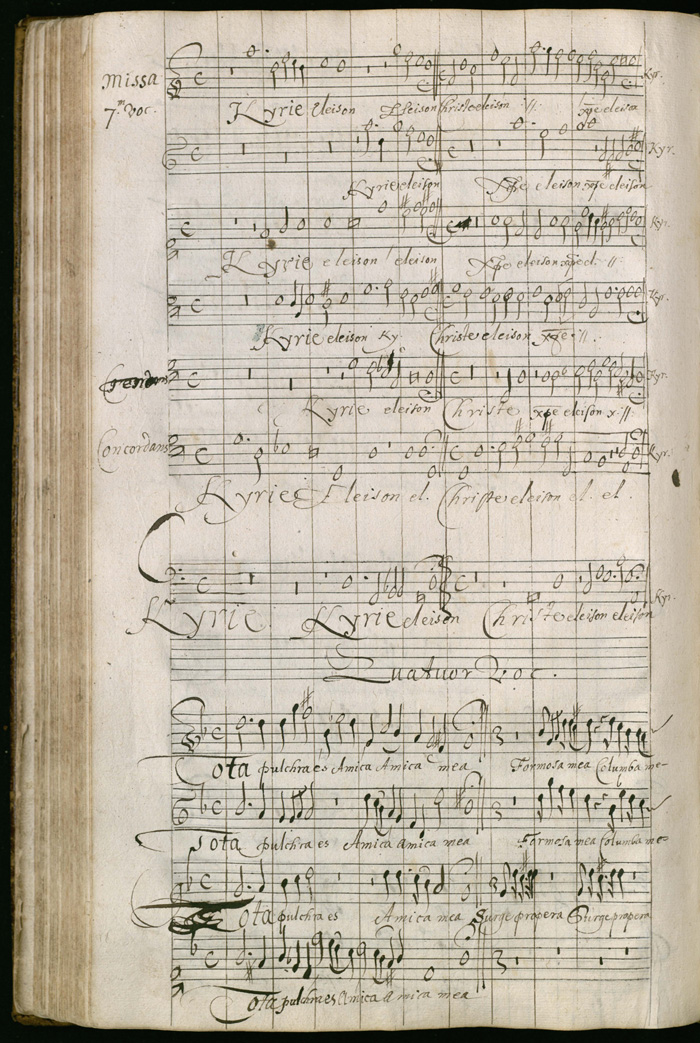 Missa
7.m Voc.
Kyrie Eleison Eleison Christe eleison :// xpe eleiso
Kyr.
Kyrie eleison Xpe eleison xpe eleison
Kyr.
Kyrie eleison eleison Xpe eleison xpe el. ://:
Kyr.
Kyrie eleison Ky. Christe eleison xpe ://.
Kyr.
Kyrie eleison Christe xpe eleison x ://:
Kyr.
Concordans
Kyrie Eleison el. Christe eleison el. el.
Kyr.
Kyrie Kyrie eleison Christe eleison eleison
Kyr.
Quatuor Voc.
Tota pulchra es Amica Amica mea Formosa mea Columba me-
Tota pulchra es Amica amica mea Formosa mea Columba me-
Tota pulchra es Amica mea Surge propera Surge propera
Tota pulchra es Amica amica mea